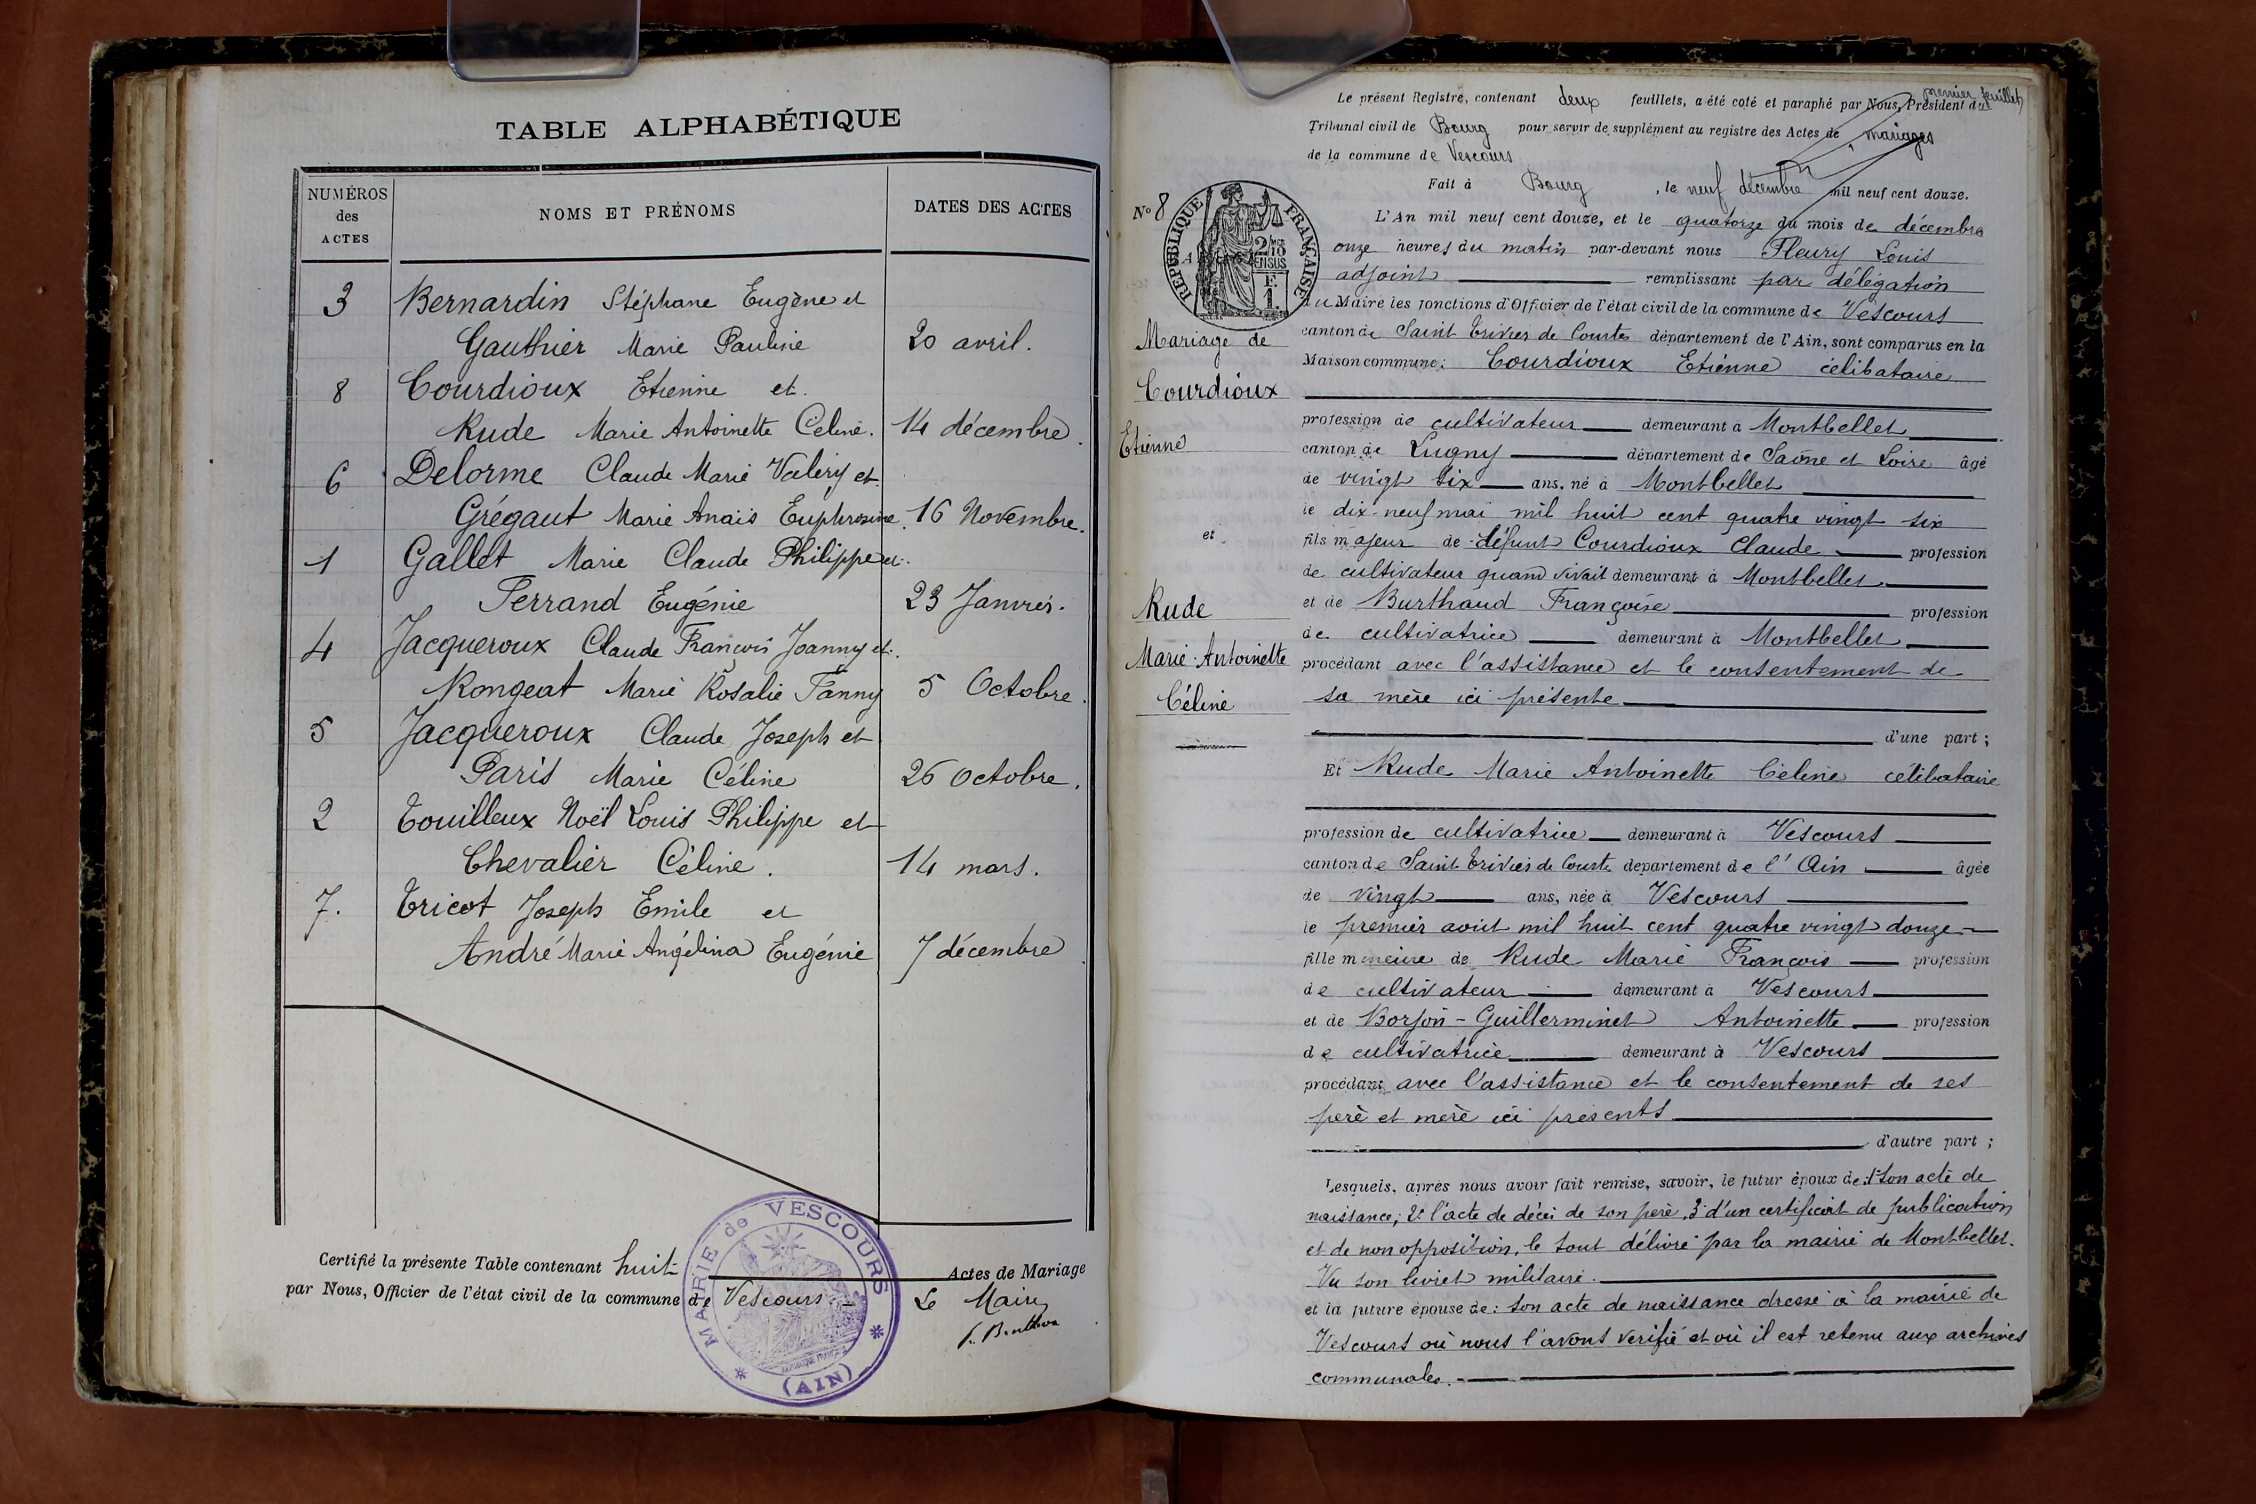 TABLE ALPHABÉTIQUE
NUMÉROS des ACTES
NOMS ET PRÉNOMS
DATES DES ACTES
3 Bernardin Stéphane Eugène et
Gauthier Marie Pauline 20 avril.
8 Courdioux Etienne et.
Rude Marie Antoinette Céline. 14 décembre.
6 Delorme Claude Marie Valéry et.
Grégaut Marie Anaïs Euphrosine. 16 Novembre.
1 Gallet Marie Claude Philippe et.
Ferrand Eugénie 23 Janvier.
4 Jacqueroux Claude François Joanny et.
Rongeat Marie Rosalie Fanny 5 Octobre.
5 Jacqueroux Claude Joseph et
Paris Marie Céline 26 Octobre.
2 Touilleux Noël Louis Philippe et
Chevalier Céline. 14 mars.
7. Tricot Joseph Emile et
André Marie Angélina Eugénie 7 décembre
Certifié la présente Table contenant huit Actes de Mariage
par Nous, Officier de l'état civil de la commune de Vescours
Le Maire
MAIRIE de VESCOURS
(AIN)
premier feuillet
Le présent Registre, contenant deux feuillets, a été coté et paraphé par Nous, Président du
Tribunal civil de Bourg pour servir de supplément au registre des Actes de mariages
de la commune de Vescours
Fait à Bourg, le neuf décembre mil neuf cent douze.
No 8
RÉPUBLIQUE FRANÇAISE
2/10 EN SUS
F.
1.
L'An mil neuf cent douze, et le quatorze du mois de décembre
onze heures du matin par-devant nous Fleury Louis
adjoint remplissant par délégation
du Maire les fonctions d'Officier de l'état civil de la commune de Vescours
canton de Saint Trivier de Courtes département de l'Ain, sont comparus en la
Maison commune: Courdioux Etienne célibataire
Mariage de
Courdioux
Etienne
et
Rude
Marie-Antoinette
Céline
profession de cultivateur demeurant à Montbellet
canton de Lugny département de Saône et Loire âgé
de vingt six ans, né à Montbellet
le dix-neuf mai mil huit cent quatre vingt six
fils majeur de défunt Courdioux Claude profession
de cultivateur quand vivait demeurant à Montbellet
et de Burthaud Françoise profession
de cultivatrice demeurant à Montbellet
procédant avec l'assistance et le consentement de
sa mère ici présente
d'une part;
Et Rude Marie Antoinette Céline célibataire
profession de cultivatrice demeurant à Vescours
canton de Saint Trivier de Courtes département de l'Ain âgée
de vingt ans, née à Vescours
le premier août mil huit cent quatre vingt douze
fille mineure de Rude Marie François profession
de cultivateur demeurant à Vescours
et de Borjon-Guillerminet Antoinette profession
de cultivatrice demeurant à Vescours
procédant avec l'assistance et le consentement de ses
père et mère ici présents
d'autre part;
Lesquels, après nous avoir fait remise, savoir, le futur époux de: 1° son acte de
naissance; 2° l'acte de décès de son père, 3° d'un certificat de publication
et de non opposition, le tout délivré par la mairie de Montbellet.
Vu son livret militaire.
et la future épouse de: son acte de naissance dressé à la mairie de
Vescours où nous l'avons vérifié et où il est retenu aux archives
communales.